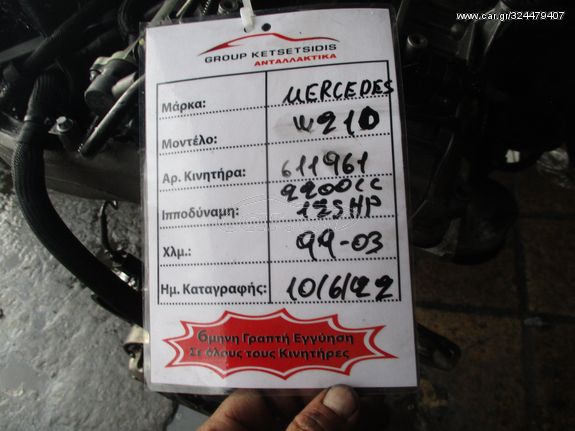 www.car.gr/324479407
GROUP KETSETSIDIS
ΑΝΤΑΛΛΑΚΤΙΚΑ
Μάρκα: MERCEDES
Μοντέλο: W210
Αρ. Κινητήρα: 611961
2200CC
Ιπποδύναμη: 125HP
Χλμ.: 99-03
Ημ. Καταγραφής: 10/6/22
6μηνη Γραπτή Εγγύηση
Σε όλους τους Κινητήρες